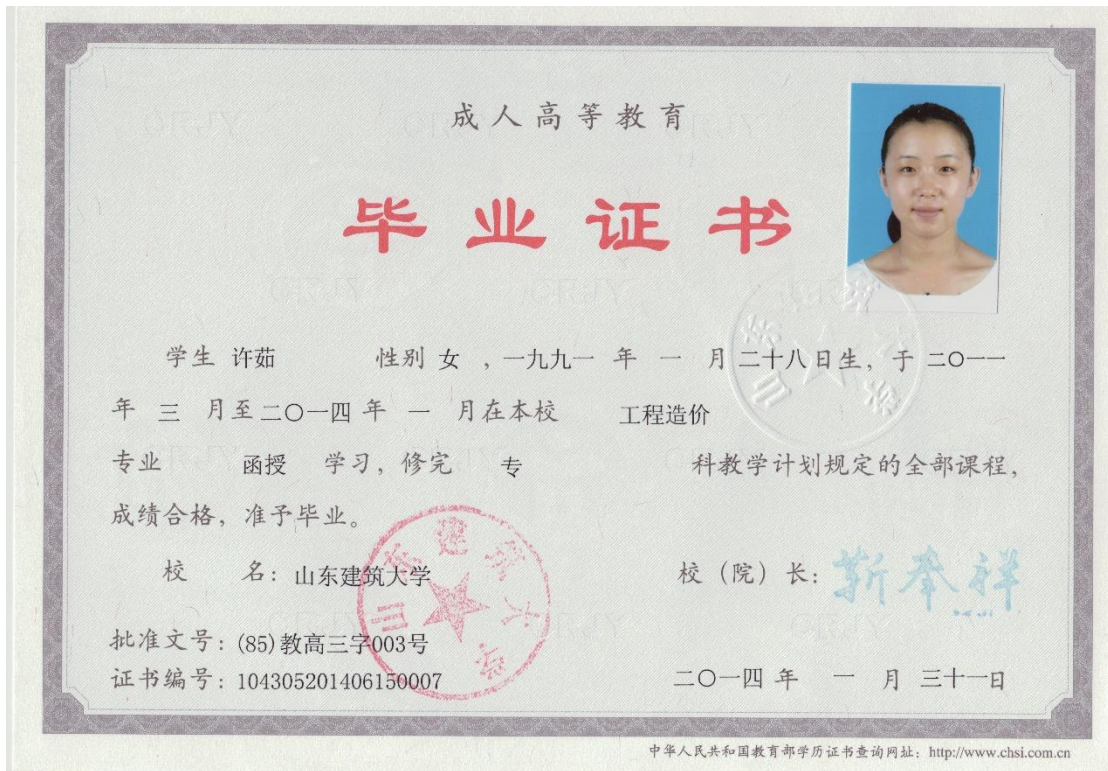 成人高等教育
毕业证书
学生 许茹 性别 女 ，一九九一 年 一 月二十八日生，于 二〇一一
年 三 月至二〇一四 年 一 月在本校 工程造价
专业 函授 学习，修完 专 科教学计划规定的全部课程，
成绩合格，准予毕业。
校 名：山东建筑大学 校（院）长：靳奉祥
山东建筑大学
批准文号：(85)教高三字003号
证书编号：104305201406150007 二〇一四 年 一 月 三十一日
中华人民共和国教育部学历证书查询网址：http://www.chsi.com.cn